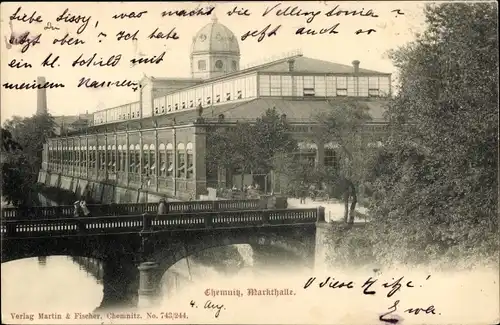 Liebe Sissy, was macht die Vellingtonia?
sitzt oben? Ich hatte selbst auch
ein kl. Schild mit
meinem Namen.
Chemnitz, Markthalle.
4. Aug.
O diese Hitze!
Ewa.
Verlag Martin & Fischer, Chemnitz. No. 743/244.